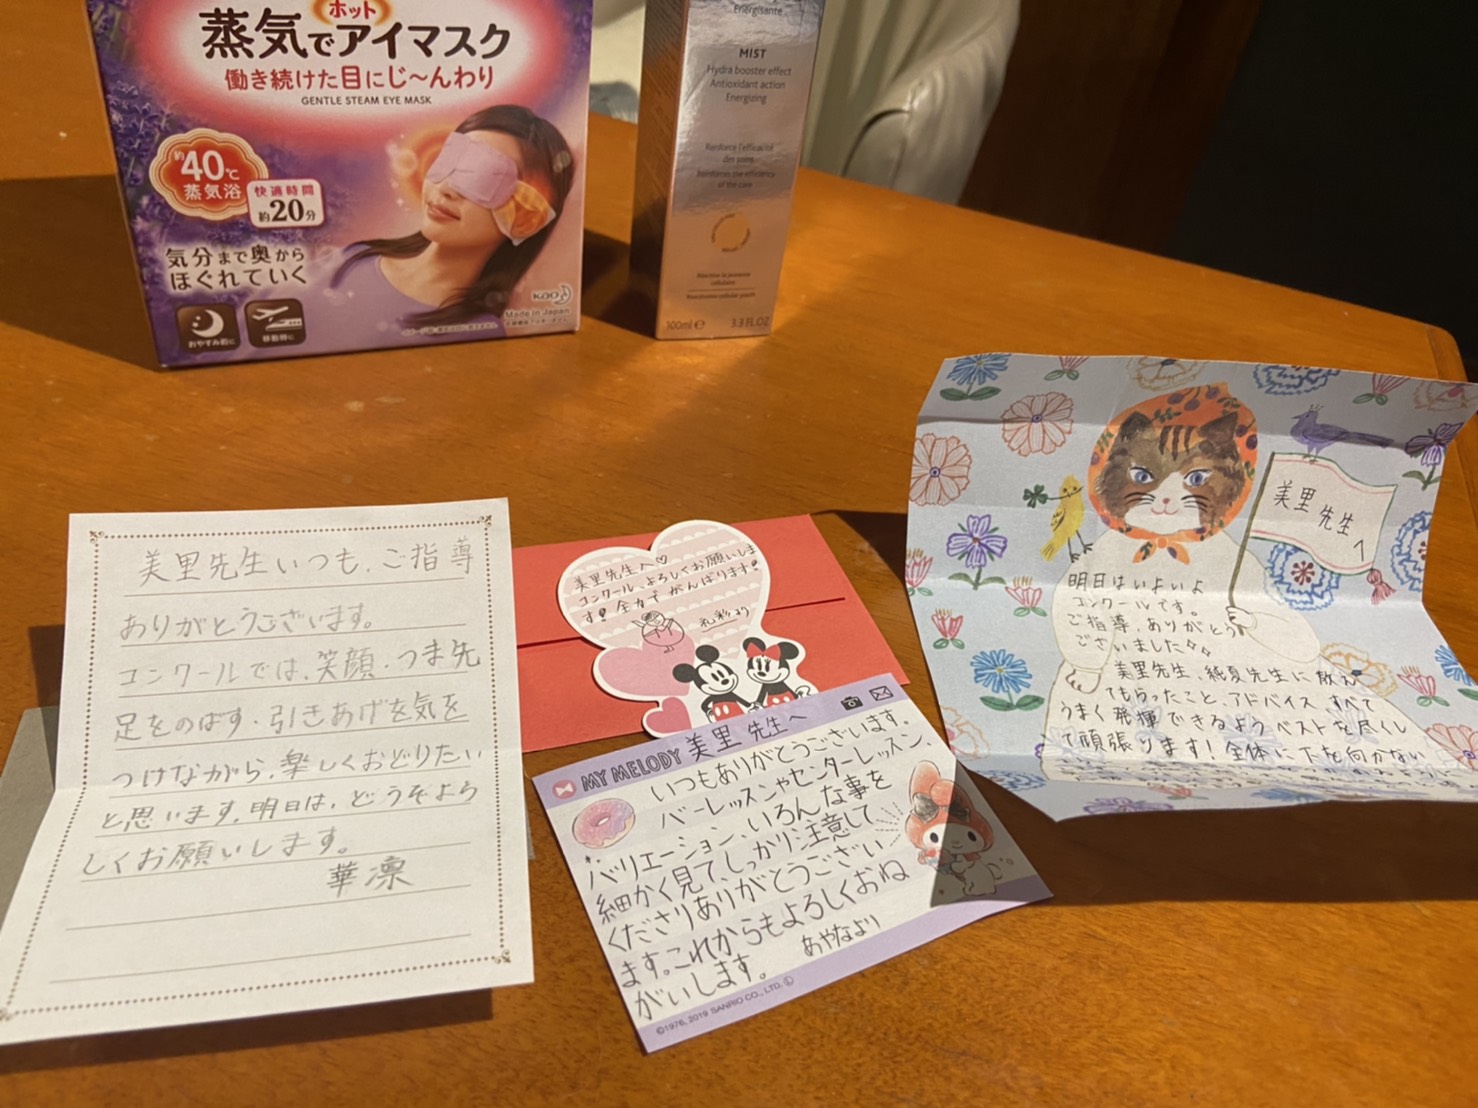 ホット
蒸気でアイマスク
働き続けた目にじ〜んわり
GENTLE STEAM EYE MASK
約40℃
蒸気浴
快適時間
約20分
気分まで奥から
ほぐれていく
おやすみ前に
移動時に
Kao
Made in Japan
Énergisante
MIST
Hydra booster effect
Antioxidant action
Energizing
Renforce l'efficacité
des soins
Reinforces the efficiency
of the care
100ml e 3.3 FL.OZ
美里先生いつも、ご指導
ありがとうございます。
コンクールでは、笑顔、つま先
足をのばす・引きあげを気を
つけながら、楽しくおどりたい
と思います。明日は、どうぞよろ
しくお願いします。
華凛
美里先生へ♡
コンクール、よろしくお願いしま
す!全力でがんばります!
礼彩より
MY MELODY 美里先生へ
いつもありがとうございます。
バーレッスンやセンターレッスン、
バリエーション、いろんな事を
細かく見て、しっかり注意して
くださりありがとうござい
ます。これからもよろしくおね
がいします。
あやなより
©1976, 2019 SANRIO CO., LTD. Ⓛ
美里先生
明日はいよいよ
コンクールです。
ご指導、ありがとう
ございました
美里先生、純夏先生に教え
てもらったこと、アドバイス、すべて
うまく発揮できるようベストを尽くし
て頑張ります!全体に下を向かない